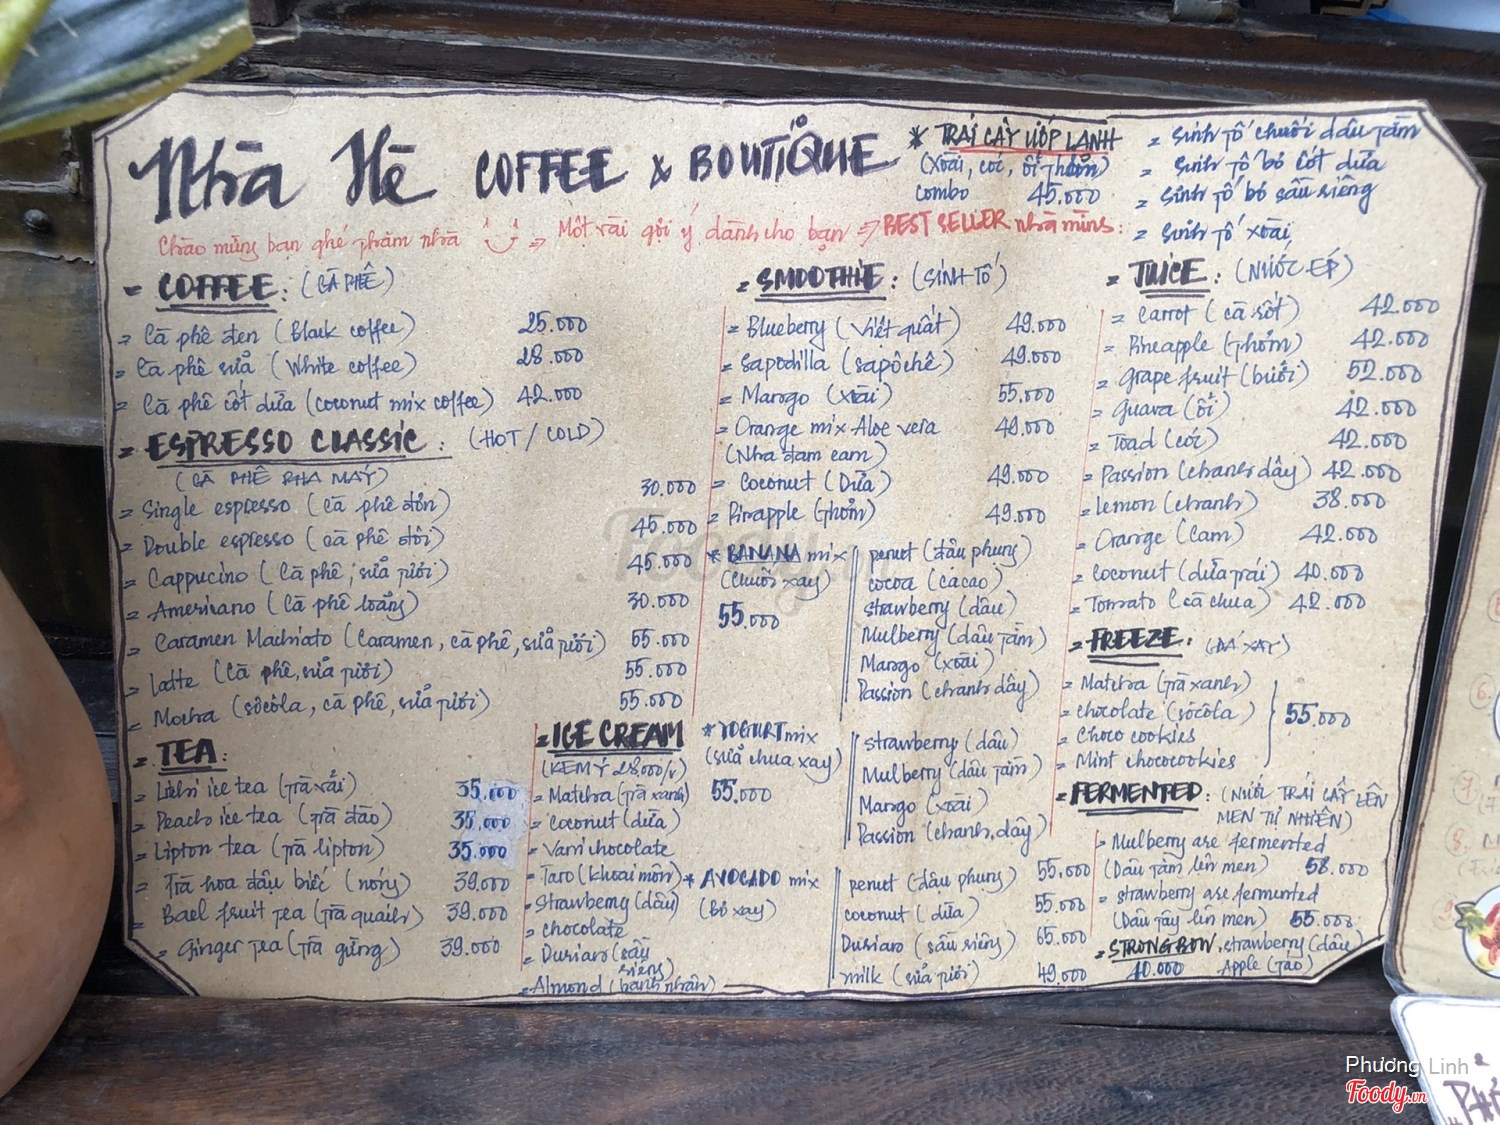 Nhà Hè COFFEE & BOUTIQUE
Chào mừng bạn ghé thăm nhà => Một vài gợi ý dành cho bạn => BEST SELLER nhà mình:
* TRÁI CÂY ƯỚP LẠNH
(Xoài, cóc, ổi, thơm)
combo 45.000
= Sinh tố chuối dâu tằm
= Sinh tố bơ cốt dừa
= Sinh tố bơ sầu riêng
= Sinh tố xoài
= COFFEE: (CÀ PHÊ)
= Cà phê đen (Black coffee) 25.000
= Cà phê sữa (White coffee) 28.000
= Cà phê cốt dừa (coconut mix coffee) 42.000
= ESPRESSO CLASSIC: (HOT / COLD)
(CÀ PHÊ PHA MÁY)
= Single espresso (cà phê đơn) 30.000
= Double espresso (cà phê đôi) 45.000
= Cappucino (Cà phê, sữa tươi) 45.000
= Americano (Cà phê loãng) 30.000
= Caramen Machiato (Caramen, cà phê, sữa tươi) 55.000
= Latte (Cà phê, sữa tươi) 55.000
= Mocha (sôcôla, cà phê, sữa tươi) 55.000
= TEA:
= Lichi ice tea (trà vải) 35.000
= Peach ice tea (Trà đào) 35.000
= Lipton tea (Trà lipton) 35.000
= Trà hoa đậu biếc (nóng) 39.000
= Bael fruit tea (trà quách) 39.000
= Ginger tea (trà gừng) 39.000
= ICE CREAM
(KEM Ý 28.000/v)
= Matcha (trà xanh)
= Coconut (dừa)
= Vani chocolate
= Taro (khoai môn)
= Strawberry (dâu)
= chocolate
= Durian (sầu riêng)
= Almond (hạnh nhân)
= SMOOTHIE: (SINH TỐ)
= Blueberry (việt quất) 49.000
= Sapodilla (sapôchê) 49.000
= Mango (xoài) 55.000
= Orange mix Aloe vera 49.000
(Nha đam cam)
= Coconut (Dừa) 49.000
= Pineapple (thơm) 49.000
* BANANA mix
(chuối xay)
55.000
penut (đậu phụng)
cocoa (cacao)
strawberry (dâu)
Mulberry (dâu tằm)
Mango (xoài)
Passion (chanh dây)
* YOGURT mix
(sữa chua xay)
55.000
strawberry (dâu)
Mulberry (dâu tằm)
Mango (xoài)
Passion (chanh dây)
* AVOCADO mix
(bơ xay)
penut (đậu phụng) 55.000
coconut (dừa) 55.000
Durian (sầu riêng) 65.000
milk (sữa tươi) 49.000
= JUICE: (NƯỚC ÉP)
= Carrot (cà rốt) 42.000
= Pineapple (thơm) 42.000
= Grape fruit (bưởi) 52.000
= Guava (ổi) 42.000
= Toad (cóc) 42.000
= Passion (chanh dây) 42.000
= Lemon (chanh) 38.000
= Orange (Cam) 42.000
= Coconut (dừa trái) 40.000
= Tomato (cà chua) 42.000
= FREEZE: (ĐÁ XAY)
= Matcha (trà xanh)
= chocolate (sôcôla)
= Choco cookies
= Mint chococookies
55.000
= FERMENTED: (NƯỚC TRÁI CÂY LÊN MEN TỰ NHIÊN)
= Mulberry are fermented
(Dâu tằm lên men) 58.000
= strawberry are fermented
(Dâu tây lên men) 55.000
= STRONGBOW, strawberry (dâu)
40.000 Apple (táo)
Foody.vn
Phương Linh
Foody.vn